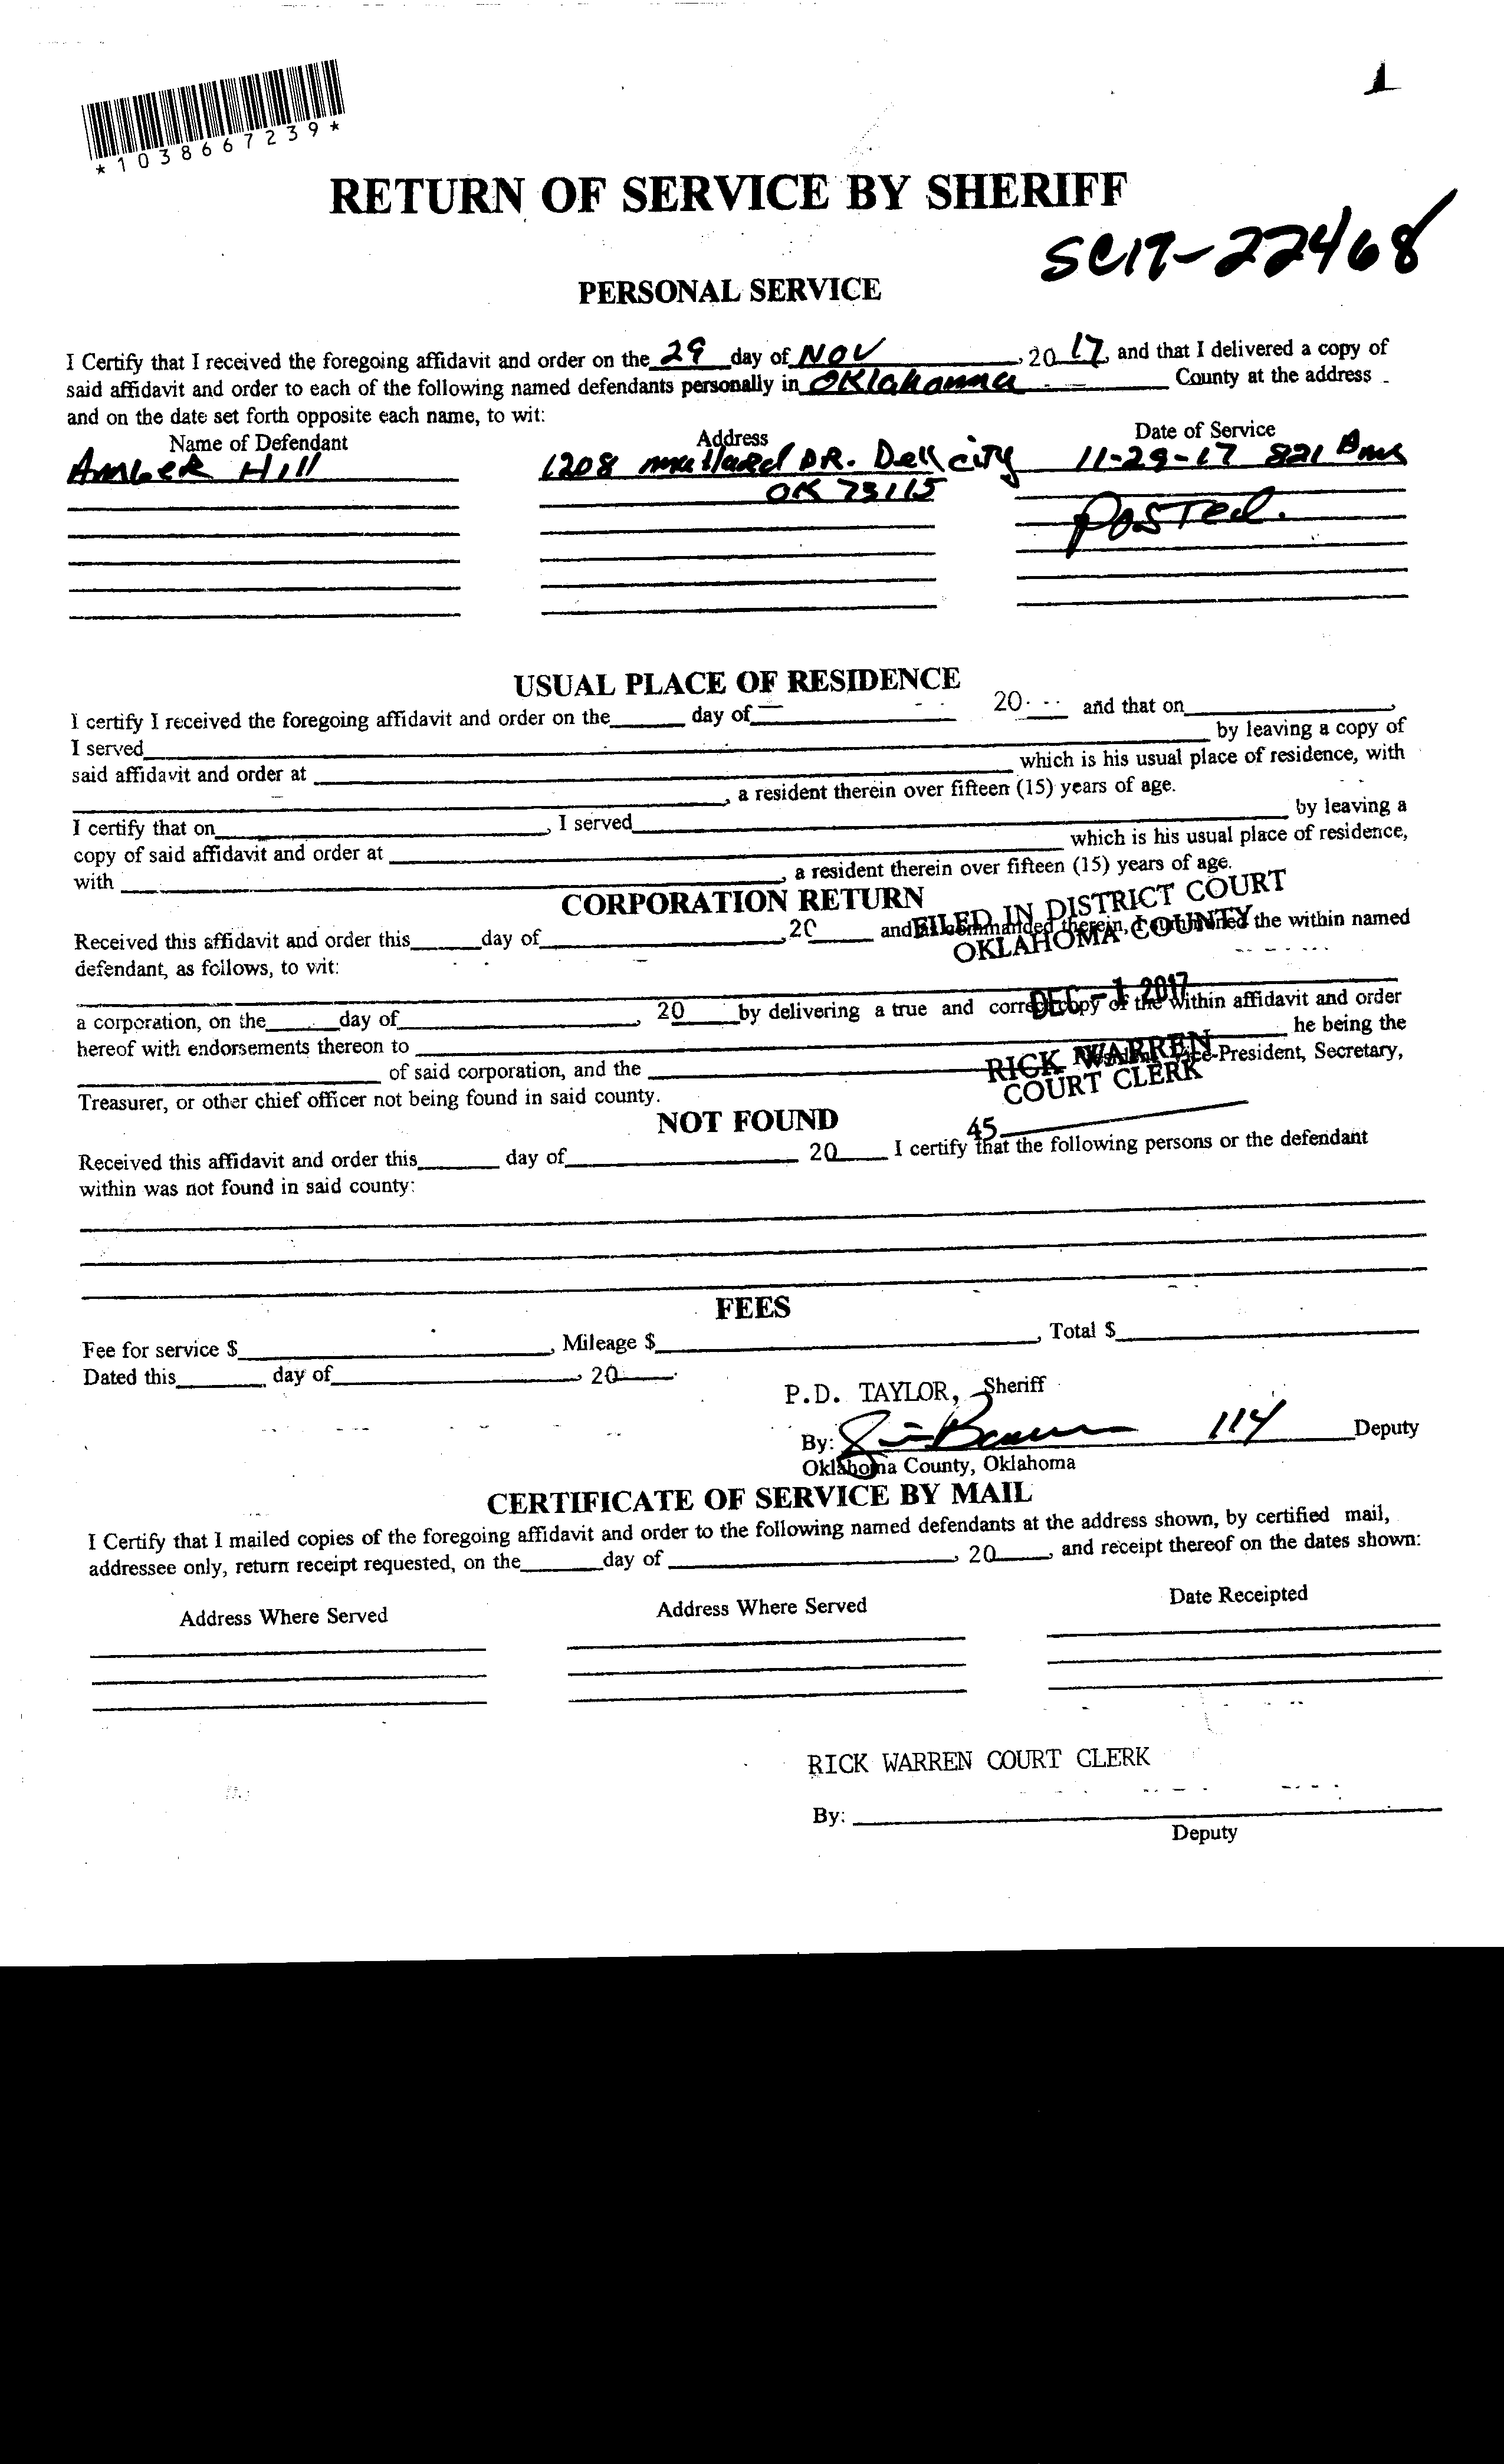 *1038667239*
RETURN OF SERVICE BY SHERIFF
SC17-22468
PERSONAL SERVICE
I Certify that I received the foregoing affidavit and order on the 29 day of NOV, 20 17, and that I delivered a copy of
said affidavit and order to each of the following named defendants personally in Oklahoma County at the address
and on the date set forth opposite each name, to wit:
Name of Defendant Address Date of Service
Amber Hill 1208 mallard DR. Dell city 11-29-17 821
OK 73115
Posted.
USUAL PLACE OF RESIDENCE
I certify I received the foregoing affidavit and order on the day of 20 and that on
I served by leaving a copy of
said affidavit and order at which is his usual place of residence, with
, a resident therein over fifteen (15) years of age.
I certify that on , I served by leaving a
copy of said affidavit and order at which is his usual place of residence,
with , a resident therein over fifteen (15) years of age.
CORPORATION RETURN
FILED IN DISTRICT COURT
OKLAHOMA COUNTY
Received this affidavit and order this day of , 20 and as commanded therein, I summoned the within named
defendant, as follows, to wit:
DEC - 1 2017
a corporation, on the day of , 20 by delivering a true and correct copy of the within affidavit and order
hereof with endorsements thereon to he being the
RICK WARREN
COURT CLERK
of said corporation, and the President, Vice-President, Secretary,
Treasurer, or other chief officer not being found in said county.
NOT FOUND
45
Received this affidavit and order this day of 20 I certify that the following persons or the defendant
within was not found in said county:
FEES
Fee for service $ , Mileage $ , Total $
Dated this day of , 20
P.D. TAYLOR, Sheriff
By: 114 Deputy
Oklahoma County, Oklahoma
CERTIFICATE OF SERVICE BY MAIL
I Certify that I mailed copies of the foregoing affidavit and order to the following named defendants at the address shown, by certified mail,
addressee only, return receipt requested, on the day of , 20 , and receipt thereof on the dates shown:
Address Where Served Address Where Served Date Receipted
RICK WARREN COURT CLERK
By:
Deputy